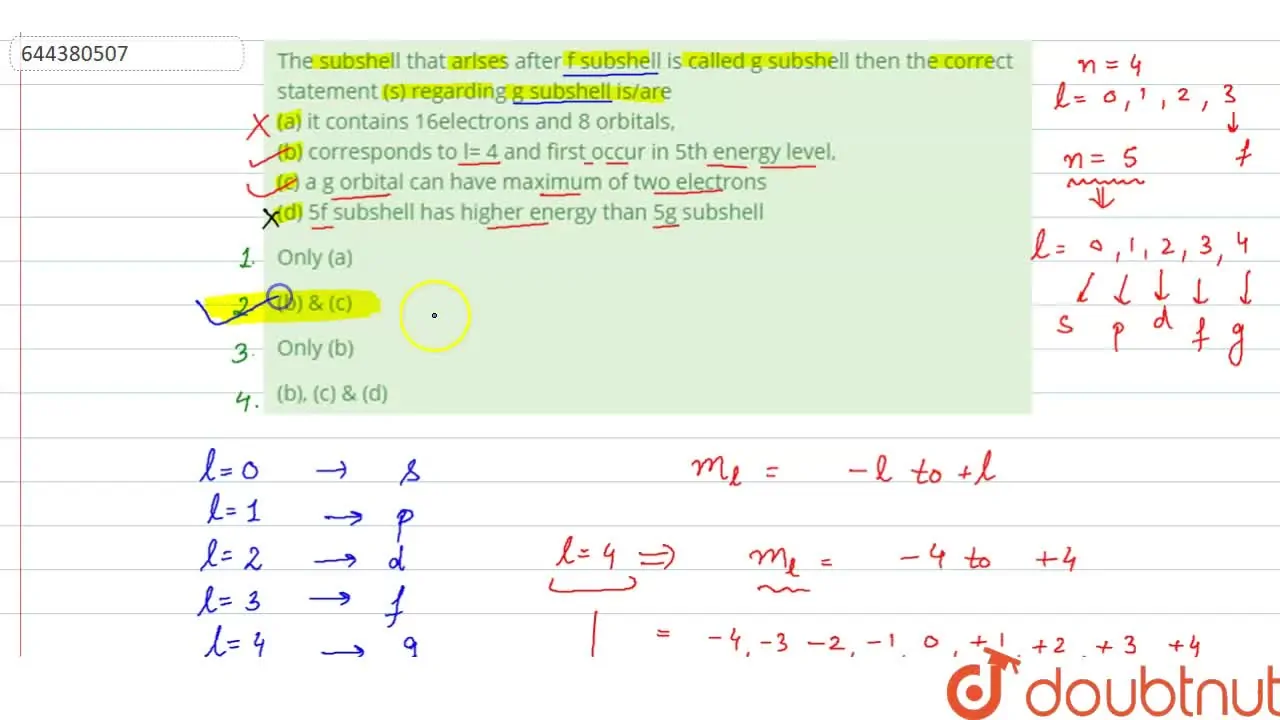 644380507
The subshell that arlses after f subshell is called g subshell then the correct
statement (s) regarding g subshell is/are
(a) it contains 16electrons and 8 orbitals,
(b) corresponds to l= 4 and first occur in 5th energy level,
(c) a g orbital can have maximum of two electrons
(d) 5f subshell has higher energy than 5g subshell
1. Only (a)
2. (b) & (c)
3. Only (b)
4. (b), (c) & (d)
n = 4
l = 0, 1, 2, 3
f
n = 5
l = 0, 1, 2, 3, 4
s p d f g
l = 0 → s
l = 1 → p
l = 2 → d
l = 3 → f
l = 4 → g
ml = -l to +l
l = 4 ⇒ ml = -4 to +4
= -4, -3 -2, -1, 0, +1, +2, +3 +4
doubtnut